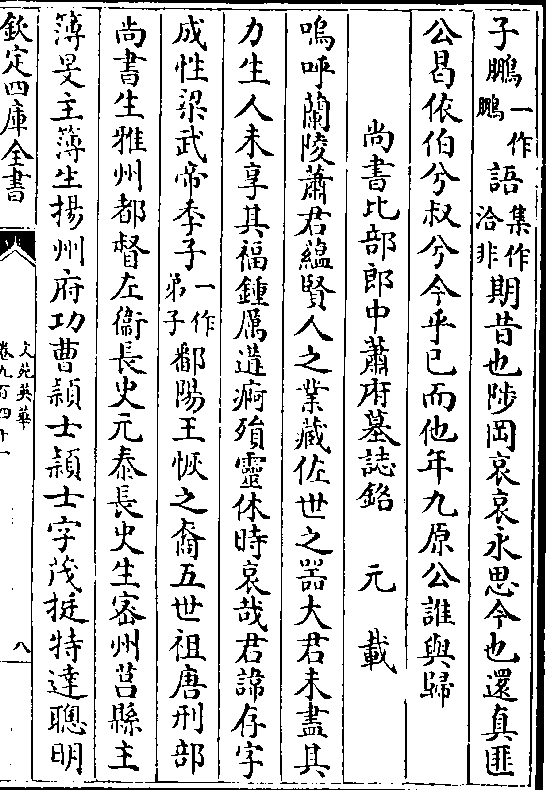 子鵬一作鵬語集作洽非期昔也陟岡哀哀永思今也還真匪
公曷依伯兮叔兮今乎已而他年九原公誰與歸
尚書比部郎中蕭府墓誌銘 元載
嗚呼蘭陵蕭君藴賢人之業藏佐世之器大君未盡其
力生人未享其福鍾厲遘痾殞靈休時哀哉君諱存字
成性梁武帝季子一作弟子鄱陽王恢之裔五世祖唐刑部
尚書生雅州都督左衞長史元泰長史生宻州莒縣主
簿旻主簿生揚州府功曹穎士穎士字茂挺特達聰明
欽定四庫全書
文苑英華
卷九百四十一
八